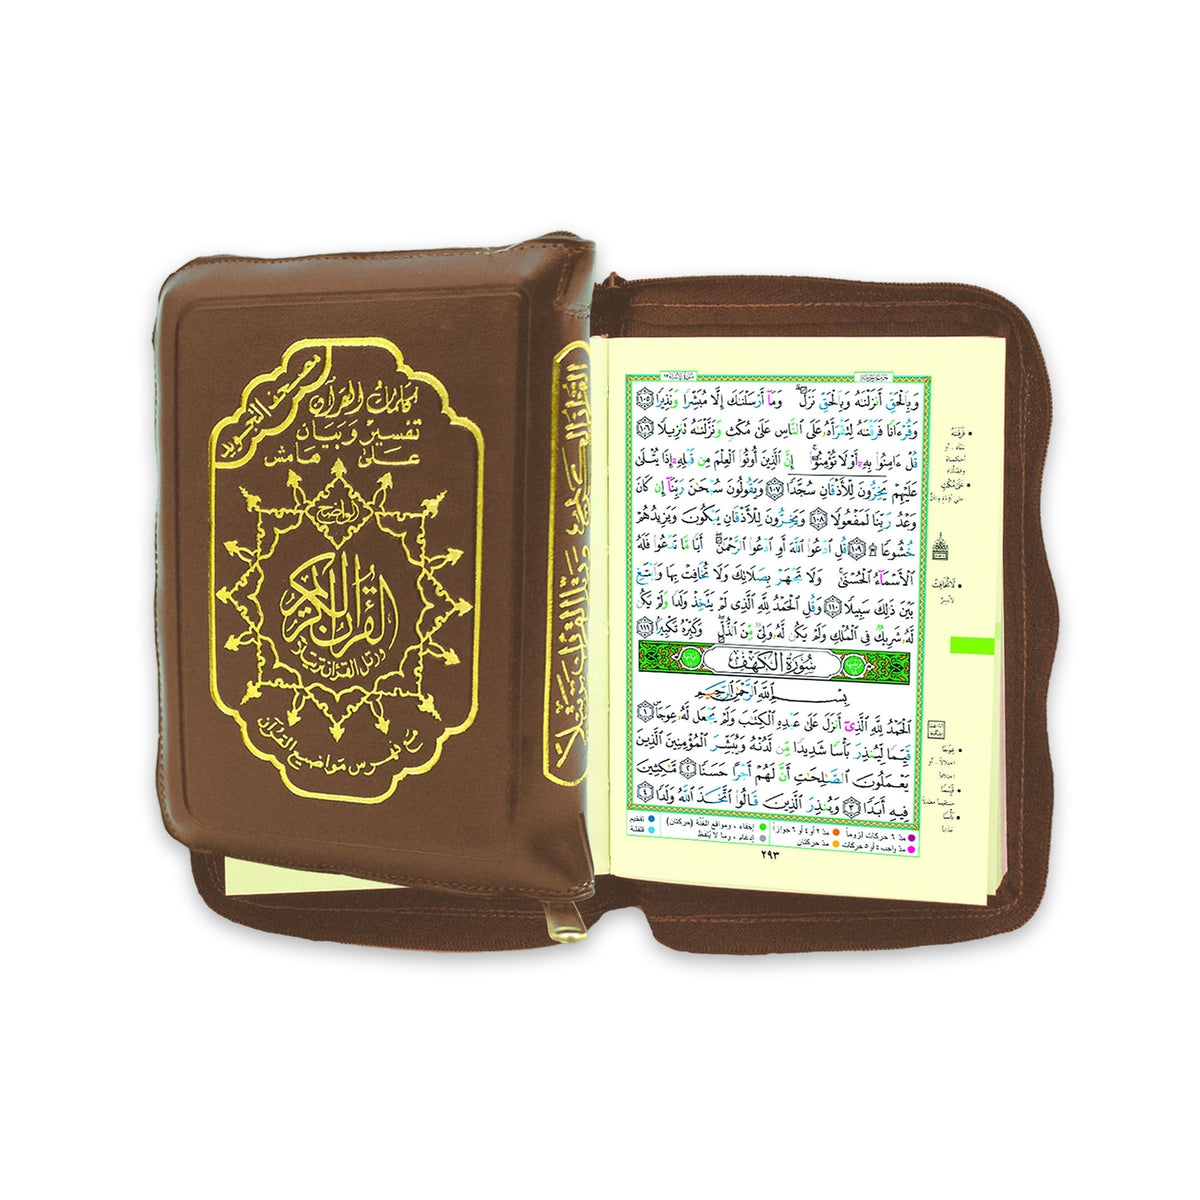 مصحف التجويد
كلمات القرآن
تفسير وبيان
على هامش
الواضح
القرآن الكريم
ورتل القرآن ترتيلا
مع فهرس مواضيع القرآن
وَبِٱلْحَقِّ أَنزَلْنَٰهُ وَبِٱلْحَقِّ نَزَلَ ۗ وَمَآ أَرْسَلْنَٰكَ إِلَّا مُبَشِّرًا وَنَذِيرًا ١٠٥
وَقُرْءَانًا فَرَقْنَٰهُ لِتَقْرَأَهُۥ عَلَى ٱلنَّاسِ عَلَىٰ مُكْثٍ وَنَزَّلْنَٰهُ تَنزِيلًا ١٠٦
قُلْ ءَامِنُوا۟ بِهِۦٓ أَوْ لَا تُؤْمِنُوٓا۟ ۚ إِنَّ ٱلَّذِينَ أُوتُوا۟ ٱلْعِلْمَ مِن قَبْلِهِۦٓ إِذَا يُتْلَىٰ
عَلَيْهِمْ يَخِرُّونَ لِلْأَذْقَانِ سُجَّدًا ١٠٧ وَيَقُولُونَ سُبْحَٰنَ رَبِّنَآ إِن كَانَ
وَعْدُ رَبِّنَا لَمَفْعُولًا ١٠٨ وَيَخِرُّونَ لِلْأَذْقَانِ يَبْكُونَ وَيَزِيدُهُمْ
خُشُوعًا ۩ ١٠٩ قُلِ ٱدْعُوا۟ ٱللَّهَ أَوِ ٱدْعُوا۟ ٱلرَّحْمَٰنَ ۖ أَيًّا مَّا تَدْعُوا۟ فَلَهُ
ٱلْأَسْمَآءُ ٱلْحُسْنَىٰ ۚ وَلَا تَجْهَرْ بِصَلَاتِكَ وَلَا تُخَافِتْ بِهَا وَٱبْتَغِ
بَيْنَ ذَٰلِكَ سَبِيلًا ١١٠ وَقُلِ ٱلْحَمْدُ لِلَّهِ ٱلَّذِى لَمْ يَتَّخِذْ وَلَدًا وَلَمْ يَكُن
لَّهُۥ شَرِيكٌ فِى ٱلْمُلْكِ وَلَمْ يَكُن لَّهُۥ وَلِىٌّ مِّنَ ٱلذُّلِّ ۖ وَكَبِّرْهُ تَكْبِيرًۢا ١١١
سُورَةُ الكَهْفِ
بِسْمِ ٱللَّهِ ٱلرَّحْمَٰنِ ٱلرَّحِيمِ
ٱلْحَمْدُ لِلَّهِ ٱلَّذِىٓ أَنزَلَ عَلَىٰ عَبْدِهِ ٱلْكِتَٰبَ وَلَمْ يَجْعَل لَّهُۥ عِوَجَا ۜ ١
قَيِّمًا لِّيُنذِرَ بَأْسًا شَدِيدًا مِّن لَّدُنْهُ وَيُبَشِّرَ ٱلْمُؤْمِنِينَ ٱلَّذِينَ
يَعْمَلُونَ ٱلصَّٰلِحَٰتِ أَنَّ لَهُمْ أَجْرًا حَسَنًا ٢ مَّٰكِثِينَ
فِيهِ أَبَدًا ٣ وَيُنذِرَ ٱلَّذِينَ قَالُوا۟ ٱتَّخَذَ ٱللَّهُ وَلَدًا ٤
مدّ ٦ حركات لزوماً مدّ ٢ أو ٤ أو ٦ جوازاً إخفاء، ومواقع الغُنَّة (حركتان) تفخيم
مدّ واجب ٤ أو ٥ حركات مدّ حركتان إدغام، وما لا يُلفَظ قلقلة
٢٩٣
فَرَقْنَٰهُ
عَلَىٰ مُكْثٍ
لَا تُخَافِتْ
عِوَجًا
قَيِّمًا
بَأْسًا
عذاباً